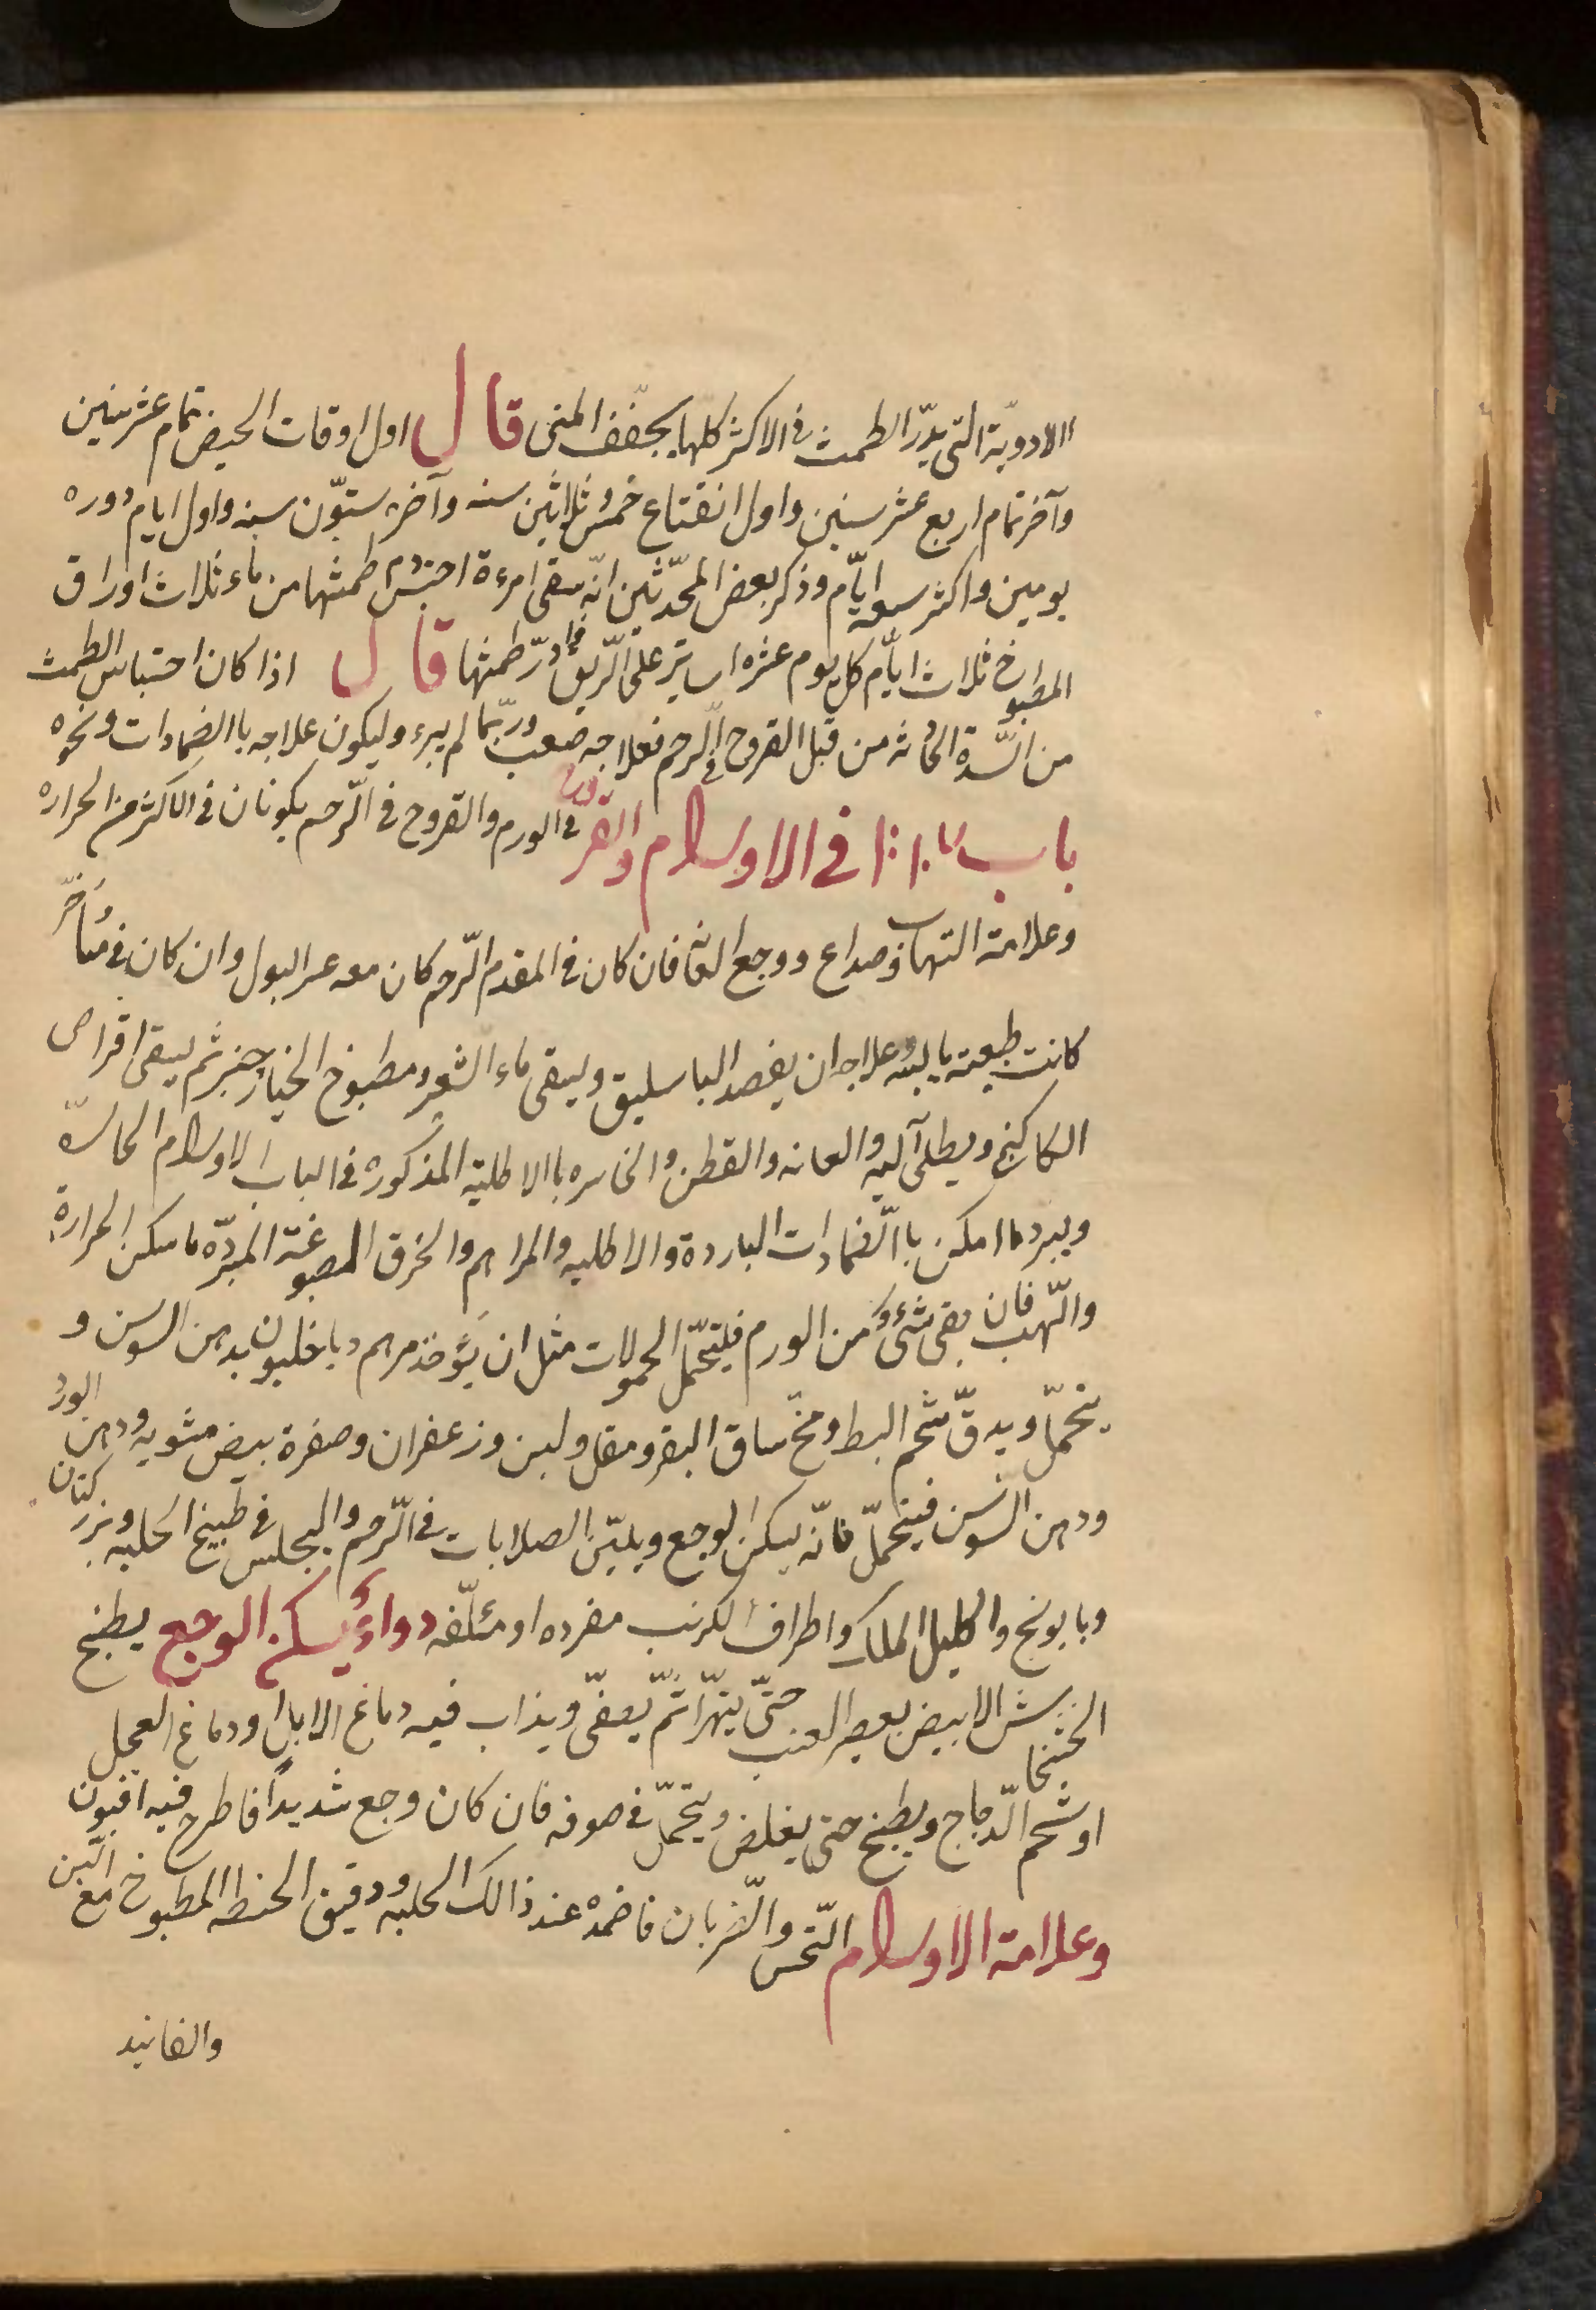 الادوية التى يدرّ الطمث فى الاكثر كلّها يجفّف المنى قال اول اوقات الحيض تمام عشر سنين
وآخر تمام اربع عشر سنين واول انقتاع خمس وثلاثين سنه وآخره ستوّن سنه واول ايام دوره
يومين واكثر سبعه ايّام وذكر بعض المحدّثين انّه سقى امرءة احتبس دم طمثها من ماء ثلاث اوراق
المطبوخ ثلاث ايّام كل يوم عشره استير على الرّيق فادرّ طمثها قال اذا كان احتباس الطمث
من السّدة الحادثه من قبل القروح فى الرحم فعلاجه ضعب وربّما لم يبرء وليكون علاجه باالضمادات ونحوه
باب ١٠٧ فى الاورام والقروح فى الورم والقروح فى الرّحم يكونان فى الاكثر من الحراره
وعلامة التهاب وصداع ووجع العانه فان كان فى المقدم الرّحم كان معه عسر البول وان كان فى مُأخّر
كانت طبيعته يابسه وعلاجه ان يفصد الباسليق ويسقى ماء الشعير ومطبوخ الخيارجنبر ثم يسقى اقراص
الكاكنج ويطلى آليه والعانه والقطن والخاسره باالاطلية المذكوره فى الباب الاورام الحارّة
ويبرد ما امكن باالضّمادات البارده والاطليه والمراهم والخرق المصبوغة المبرّده ما سكن الحرارة
والّهب فان بقى شئ من الورم فليتحمّل الحمولات مثل ان يؤخذ مرهم دباخليون بدهن السوسن و
يتحمّل ويدقّ شحم البط ومخّ ساق البقر ومقل ولبن وزعفران وصفرة بيض مشويه ودهن الورد
ودهن السّوسن فيتحملّ فانّه يسكن الوجع ويليّن الصلابات فى الرّحم واليجلس فى طبيخ الحلبه وبزر كتان
وبابونج واكليل الملك واطراف الكرنب مفرده او مئلّفه دواءٌ يسكن الوجع يطبخ
الخشخاش الابيض بعصير العنب حتىّ يتهرّا ثمّ يصفّى ويذاب فيه دماغ الابل او دماغ العجل
او شحم الدّجاج ويطبخ حتى يغلض ويتحمّل فى صوفه فان كان وجع شديداً فاطرح فيه افيون
وعلامة الاورام النّخس والضّربان فاضمدْه عند ذالك الحلبه ودقيق الحنطه المطبوخ مع التّين
والفانيد